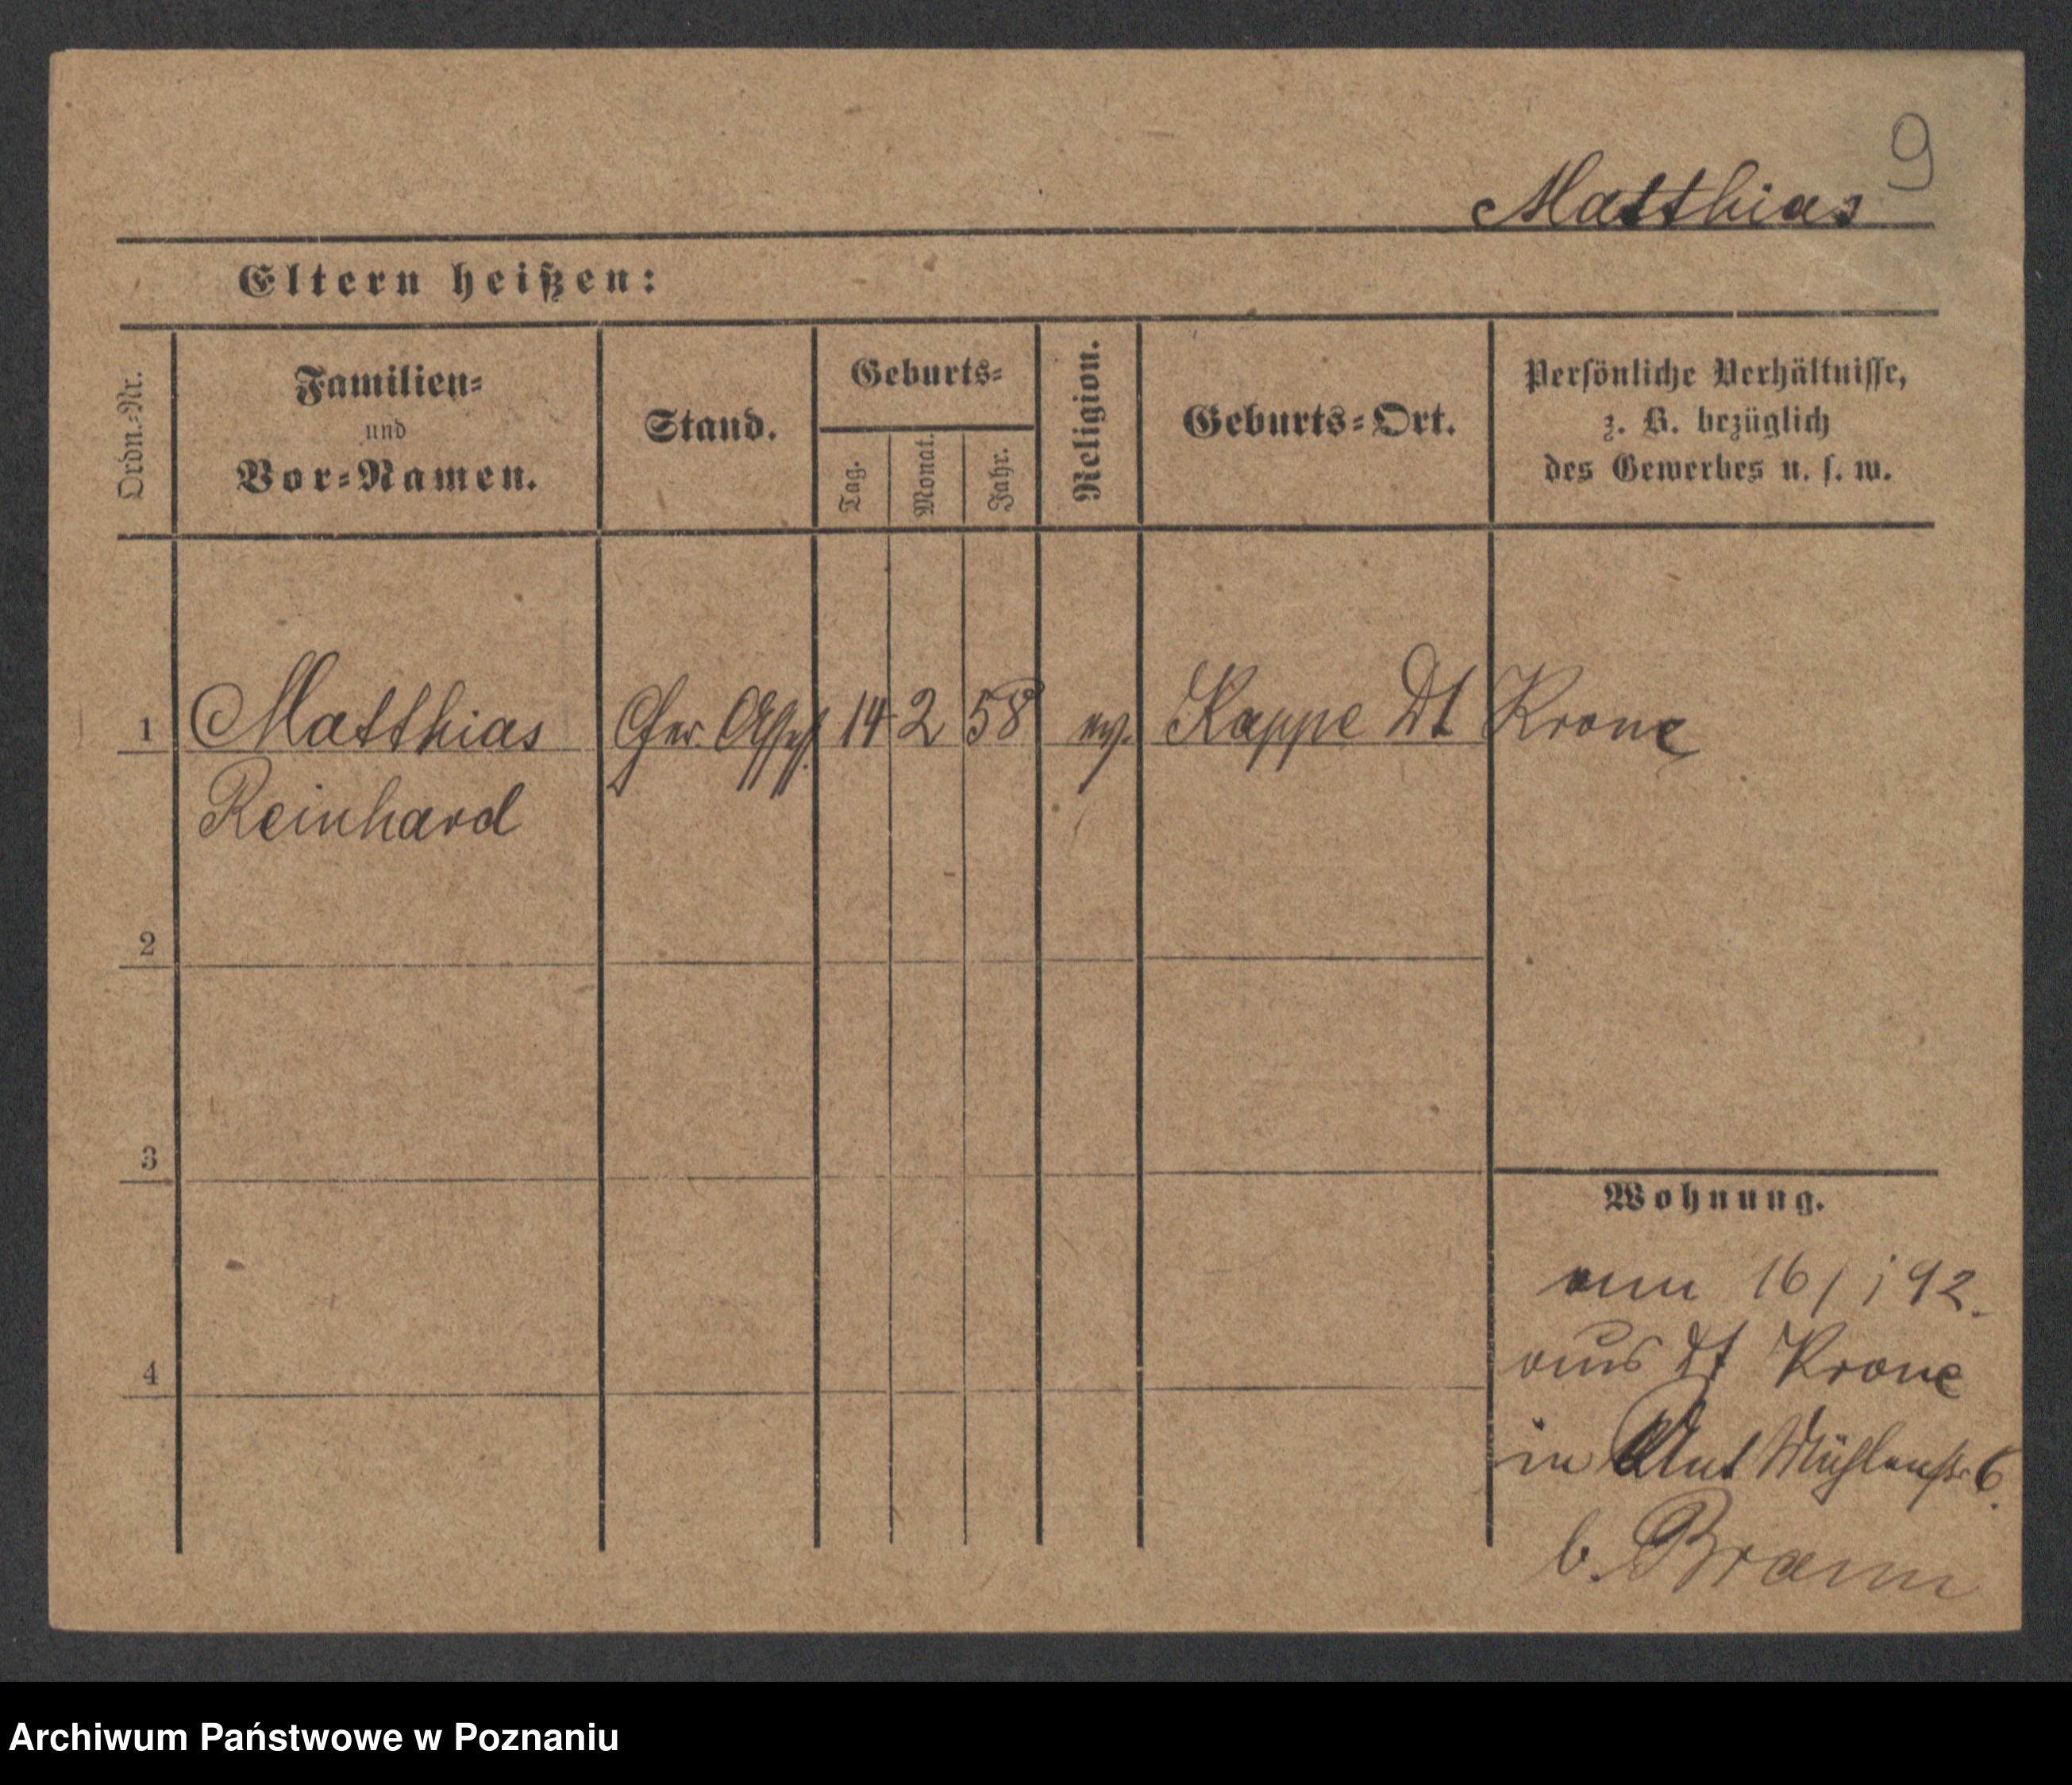 9
Matthias
Eltern heißen:
Ordn.=Nr.
Familien=
und
Vor=Namen.
Stand.
Geburts=
Tag.
Monat.
Jahr.
Religion.
Geburts=Ort.
Persönliche Verhältnisse,
z. B. bezüglich
des Gewerbes u. s. w.
1 Matthias 14 2 58 ev. Kappe Dt Krone
Reinhard
2
3
Wohnung.
16/1 92.
4
aus Dt Krone
in Mühlenstr 6.
b. Braun
Archiwum Państwowe w Poznaniu